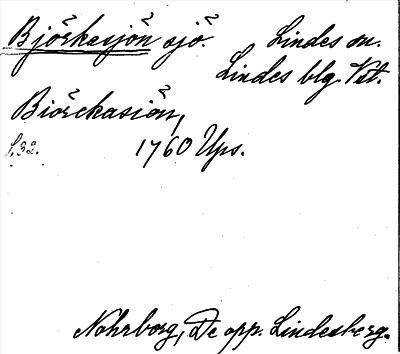 Björkasjön sjö. Lindes sn.
Lindes blg. Vstm.
Biörckasiön,
s. 32. 1760 Ups.
Nohrborg, De opp. Lindesberg.